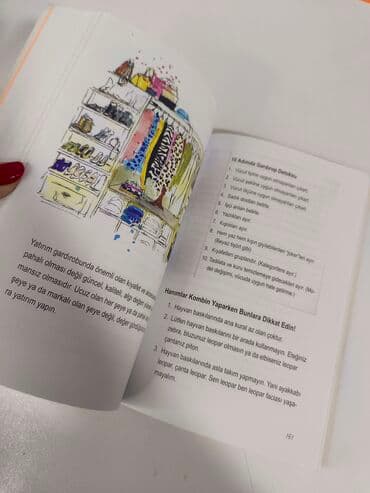 Yatırım gardırobunda önemli olan kıyafet ve
pahalı olması değil güncel, kaliteli, ağır değer
mansız olmasıdır. Ucuz olan her şeye ya da
şeye ya da markalı olan şeye değil, değer
ra yatırım yapın.
10 Adımda Gardırop Detoksu
1. Vücut tipime uygun olmayanları çıkart.
2. Vücut şekline uygun olmayanları çıkart.
3. Vücut ölçüme uygun olmayanları çıkart.
4. Sabit olanları belirle.
5. İşçi arıları belirle.
6. Yazlıkları ayır.
7. Kışlıkları ayır.
8. Hem yaz hem kışın giyilebilenleri "joker"leri ayır.
(Beyaz tişört gibi)
9. Kıyafetleri gruplandır. (Kategorilere ayır.)
10. Tadilata ve kuru temizlemeye gidecekleri ayır. (Mo-
del değişimi, vücuda uygun hale getirme.)
Hanımlar Kombin Yaparken Bunlara Dikkat Edin!
1. Hayvan baskılarında ana kural az olan çoktur.
2. Lütfen hayvan baskılarını bir arada kullanmayın. Eteğiniz
zebra, bluzunuz leopar olmasın ya da elbiseniz leopar
çantanız piton.
3. Hayvan baskılarında asla takım yapmayın. Yani ayakkabı
leopar, çanta leopar. Sen leopar ben leopar faciası yaşa-
mayalım.
151